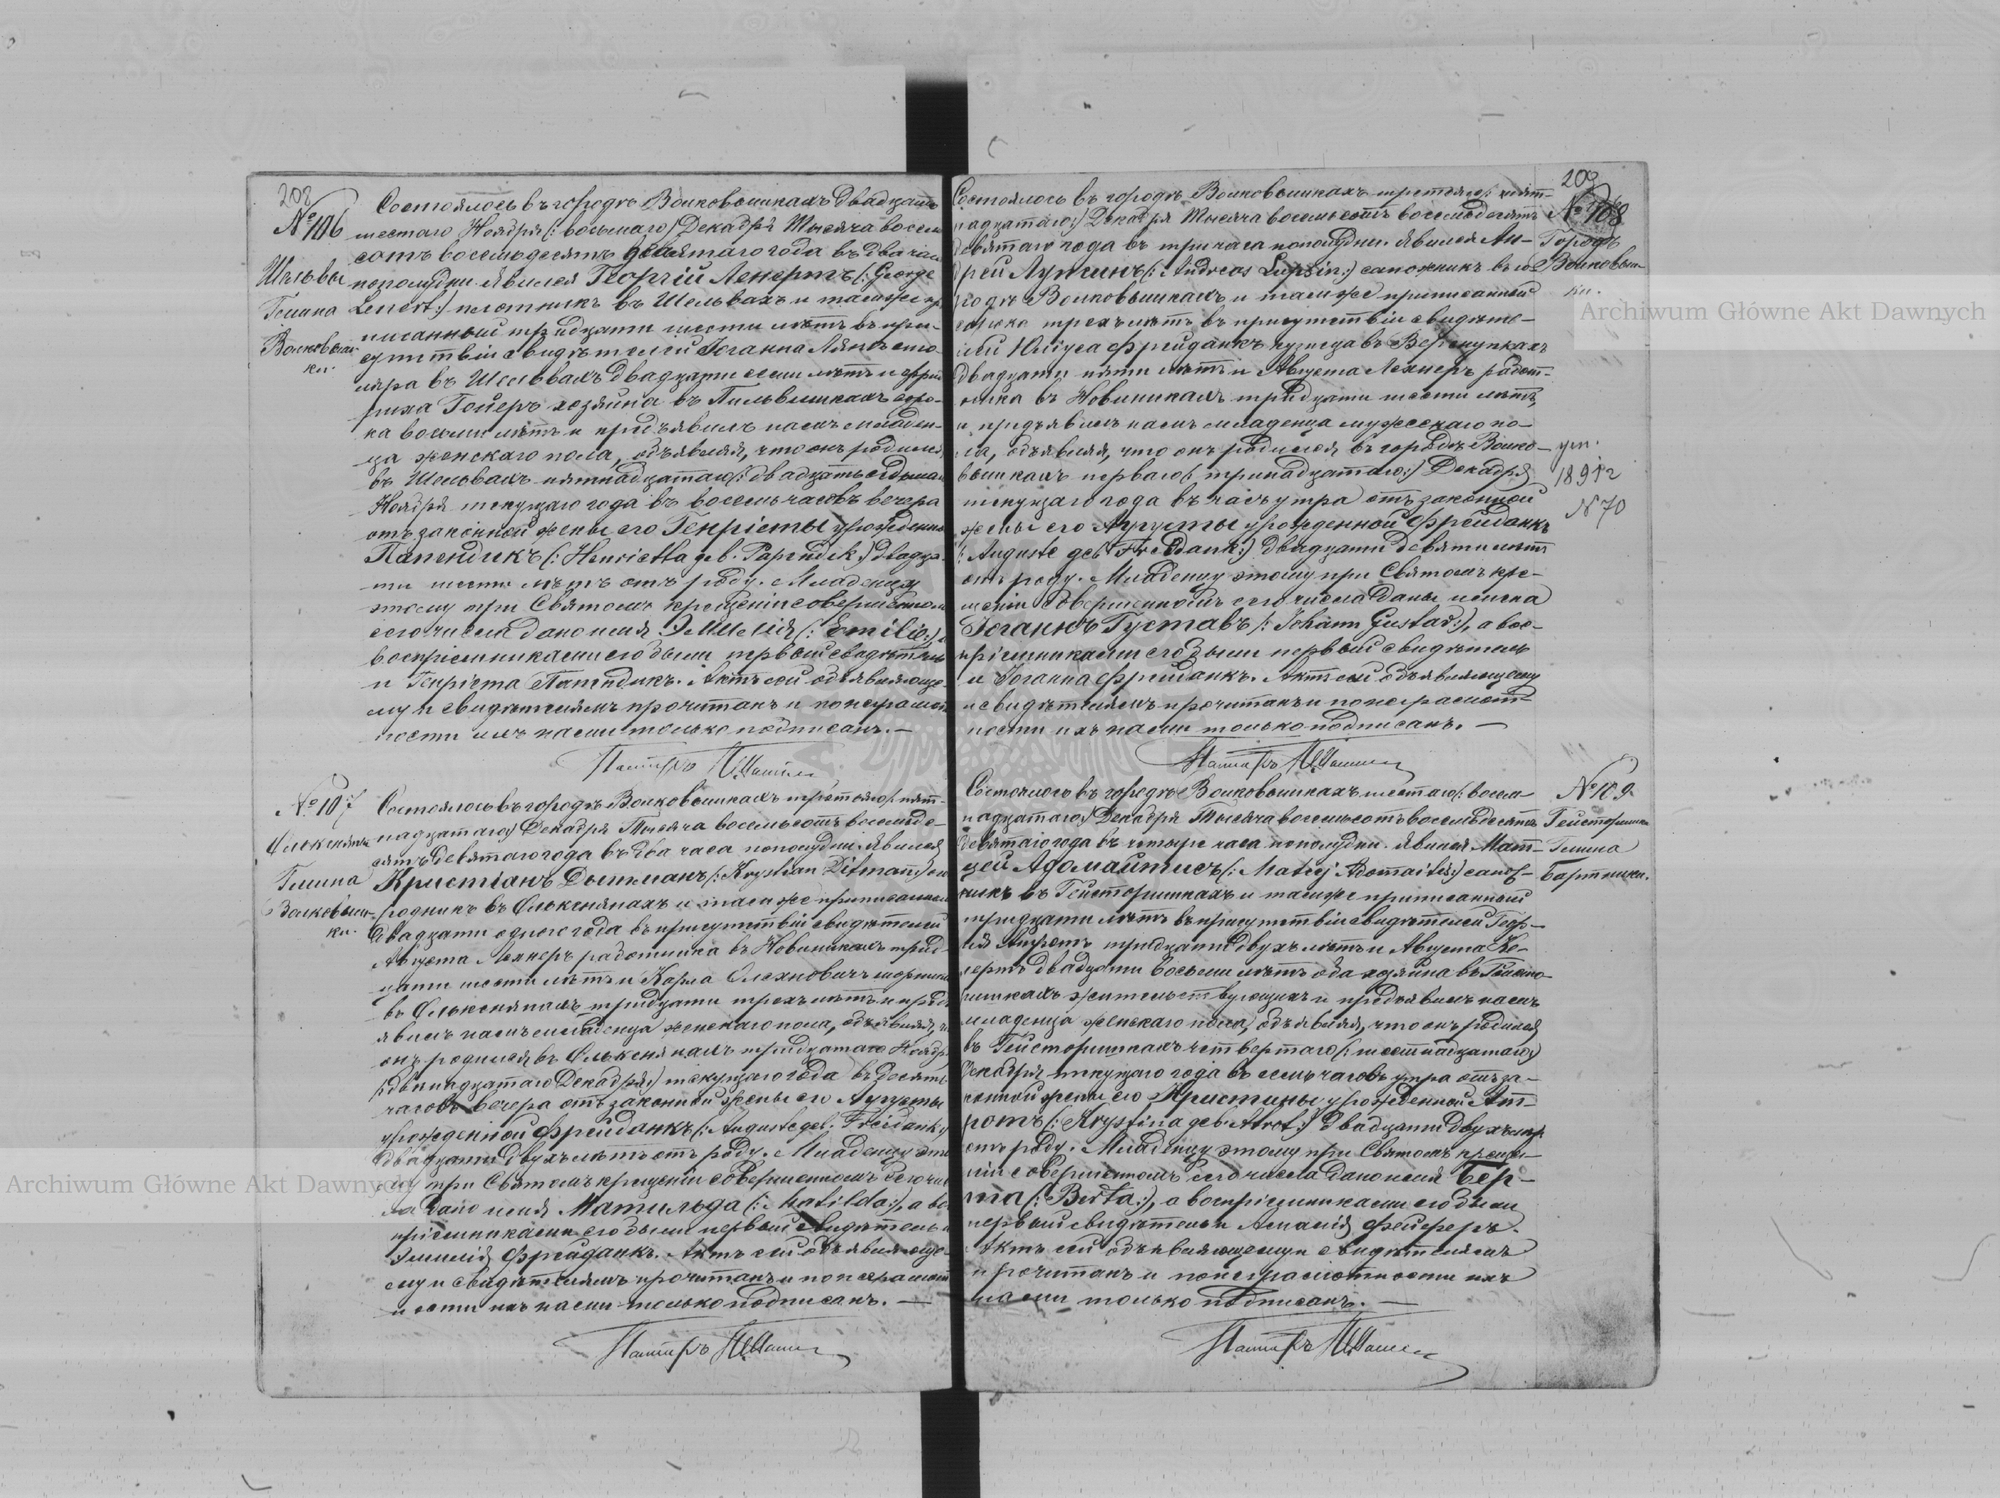 208
№ 106
Шельвы
Гмина
Волковыш-
ки.
Состоялось въ городѣ Волковышкахъ двадцать
шестаго Ноября (: восьмаго) Декабря Тысяча восемь
сотъ восемьдесятъ девятаго года въ два часа
пополудни. явился Георгій Ленертъ (: George
Lenert:) плотникъ въ Шельвахъ и тамъ же при-
писанный тридцати шести лѣтъ въ при-
сутствіи свидѣтелей Іоганна сто-
ляра въ Шельвахъ двадцати семи лѣтъ и Фрид-
риха Гойеръ хозяина въ Пильвишкахъ соро-
ка восьми лѣтъ и предъявилъ намъ младен-
ца женскаго пола, объявляя, что онъ родился
въ Шельвахъ пятнадцатаго (: двадцать седьмаго
Ноября текущаго года въ восемь часовъ вечера
отъ законной жены его Генріеты урожденной
Папендикъ (: Henrietta geb. Papendik:) двадца-
ти шести лѣтъ отъ роду. Младенцу
этому при Святомъ крещеніи совершенномъ
сего числа дано имя Эмилія (: Emilie:), а
воспріемниками его были первый свидѣтель
и Генріета Папендикъ. Актъ сей объявляюще-
му и свидѣтелямъ прочитанъ и по неграмот-
ности ихъ нами только подписанъ. —
Пасторъ
№ 107
Гмина
Волковыш-
ки.
Состоялось въ городѣ Волковышкахъ третьяго (: пят-
надцатаго) Декабря Тысяча восемьсотъ восемьде-
сятъ девятаго года въ два часа пополудни. явился
Кристіанъ Дытманъ (: Krystian Ditman:)
въ и тамъ же приписанный
двадцати одного года въ присутствіи свидѣтелей
Августа Лехнеръ работника въ Новиникахъ трид-
цати шести лѣтъ и Карла Олехновичъ
въ тридцати трехъ лѣтъ и предъ-
явилъ намъ младенца женскаго пола, объявляя, что
онъ родился въ тридцатаго Ноября
(: двѣнадцатаго Декабря:) текущаго года въ десять
часовъ вечера отъ законной жены его Августы
урожденной Фрейданкъ (: Auguste geb: Freidank:)
двадцати двухъ лѣтъ отъ роду. Младенцу это-
му при Святомъ крещеніи совершенномъ сего чис-
ла дано имя Матильда (: Matilda:), а вос-
пріемниками его были первый свидѣтель и
Эмилія Фрейданкъ. Актъ сей объявляюще-
му и свидѣтелямъ прочитанъ и по неграмот-
ности ихъ нами только подписанъ. —
Пасторъ
209
№ 108
Городъ
Волковыш-
ки.
ум.
№ 70
Состоялось въ городѣ Волковышкахъ третьяго (: пят-
надцатаго:) Декабря Тысяча восемьсотъ восемьдесятъ
девятаго года въ три часа пополудни. явился Ан-
дрей Лупсинъ (: Andreas Lupsin:) сапожникъ въ го-
родѣ Волковышкахъ и тамъ же приписанный
сорока трехъ лѣтъ въ присутствіи свидѣте-
лей Юліуса Фрейданкъ кузнеца въ
двадцати пяти лѣтъ и Августа Лехнеръ работ-
ника въ Новиникахъ тридцати шести лѣтъ,
и предъявилъ намъ младенца мужескаго по-
ла, объявляя, что онъ родился въ городѣ Волко-
вышкахъ перваго (: тринадцатаго:) Декабря
текущаго года въ часъ утра отъ законной
жены его Августы урожденной Фрейданкъ
(: Auguste geb Freidank:) двадцати девяти лѣтъ
отъ роду. Младенцу этому при Святомъ кре-
щеніи совершенномъ сего числа даны имена
Іоганнъ Густавъ (: Johann Gustav:), а вос-
пріемниками его были первый свидѣтель
и Іоганна Фрейданкъ. Актъ сей объявляющему
и свидѣтелямъ прочитанъ и по неграмот-
ности ихъ нами только подписанъ. —
Пасторъ
№ 109
Гейсторишки
Гмина
Бартники.
Состоялось въ городѣ Волковышкахъ шестаго (: восем-
надцатаго:) Декабря Тысяча восемьсотъ восемьдесятъ
девятаго года въ четыре часа пополудни. явился Мат-
цей Адомайтисъ (: Matzej Adomaitis:) сапож-
никъ въ Гейсторишкахъ и тамъ же приписанный
тридцати лѣтъ въ присутствіи свидѣтелей Геор-
гія Атротъ тридцати двухъ лѣтъ и Августа
двадцати восьми лѣтъ оба хозяина въ Гейсто-
ришкахъ жительствующихъ и предъявилъ намъ
младенца женскаго пола, объявляя, что онъ родился
въ Гейсторишкахъ четвертаго (: шестнадцатаго:)
Декабря текущаго года въ семь часовъ утра отъ за-
конной жены его Кристины урожденной Ат-
ротъ (: Krystina geb. Atrot:) двадцати двухъ лѣтъ
отъ роду. Младенцу этому при Святомъ креще-
ніи совершенномъ сего числа дано имя Бер-
та (: Berta:), а воспріемниками его были
первый свидѣтель и Амалія Фейферъ.
Актъ сей объявляющему и свидѣтелямъ
прочитанъ и по неграмотности ихъ
нами только подписанъ. —
Пасторъ
Archiwum Główne Akt Dawnych
Archiwum Główne Akt Dawnych